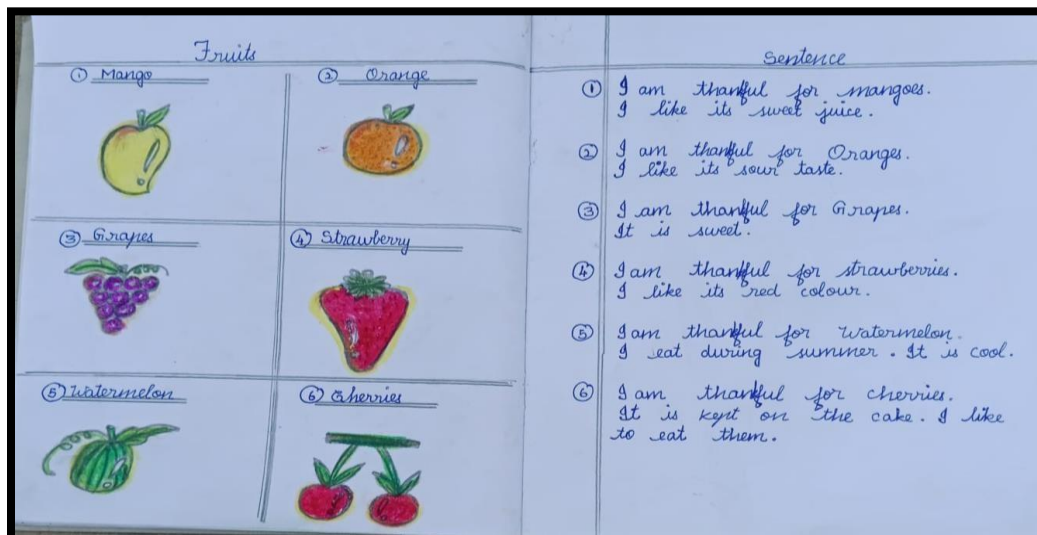 Fruits
① Mango
② Orange
③ Grapes
④ Strawberry
⑤ Watermelon
⑥ Cherries
Sentence
① I am thankful for mangoes.
I like its sweet juice.
② I am thankful for Oranges.
I like its sour taste.
③ I am thankful for Grapes.
It is sweet.
④ I am thankful for strawberries.
I like its red colour.
⑤ I am thankful for watermelon.
I eat during summer. It is cool.
⑥ I am thankful for cherries.
It is kept on the cake. I like
to eat them.